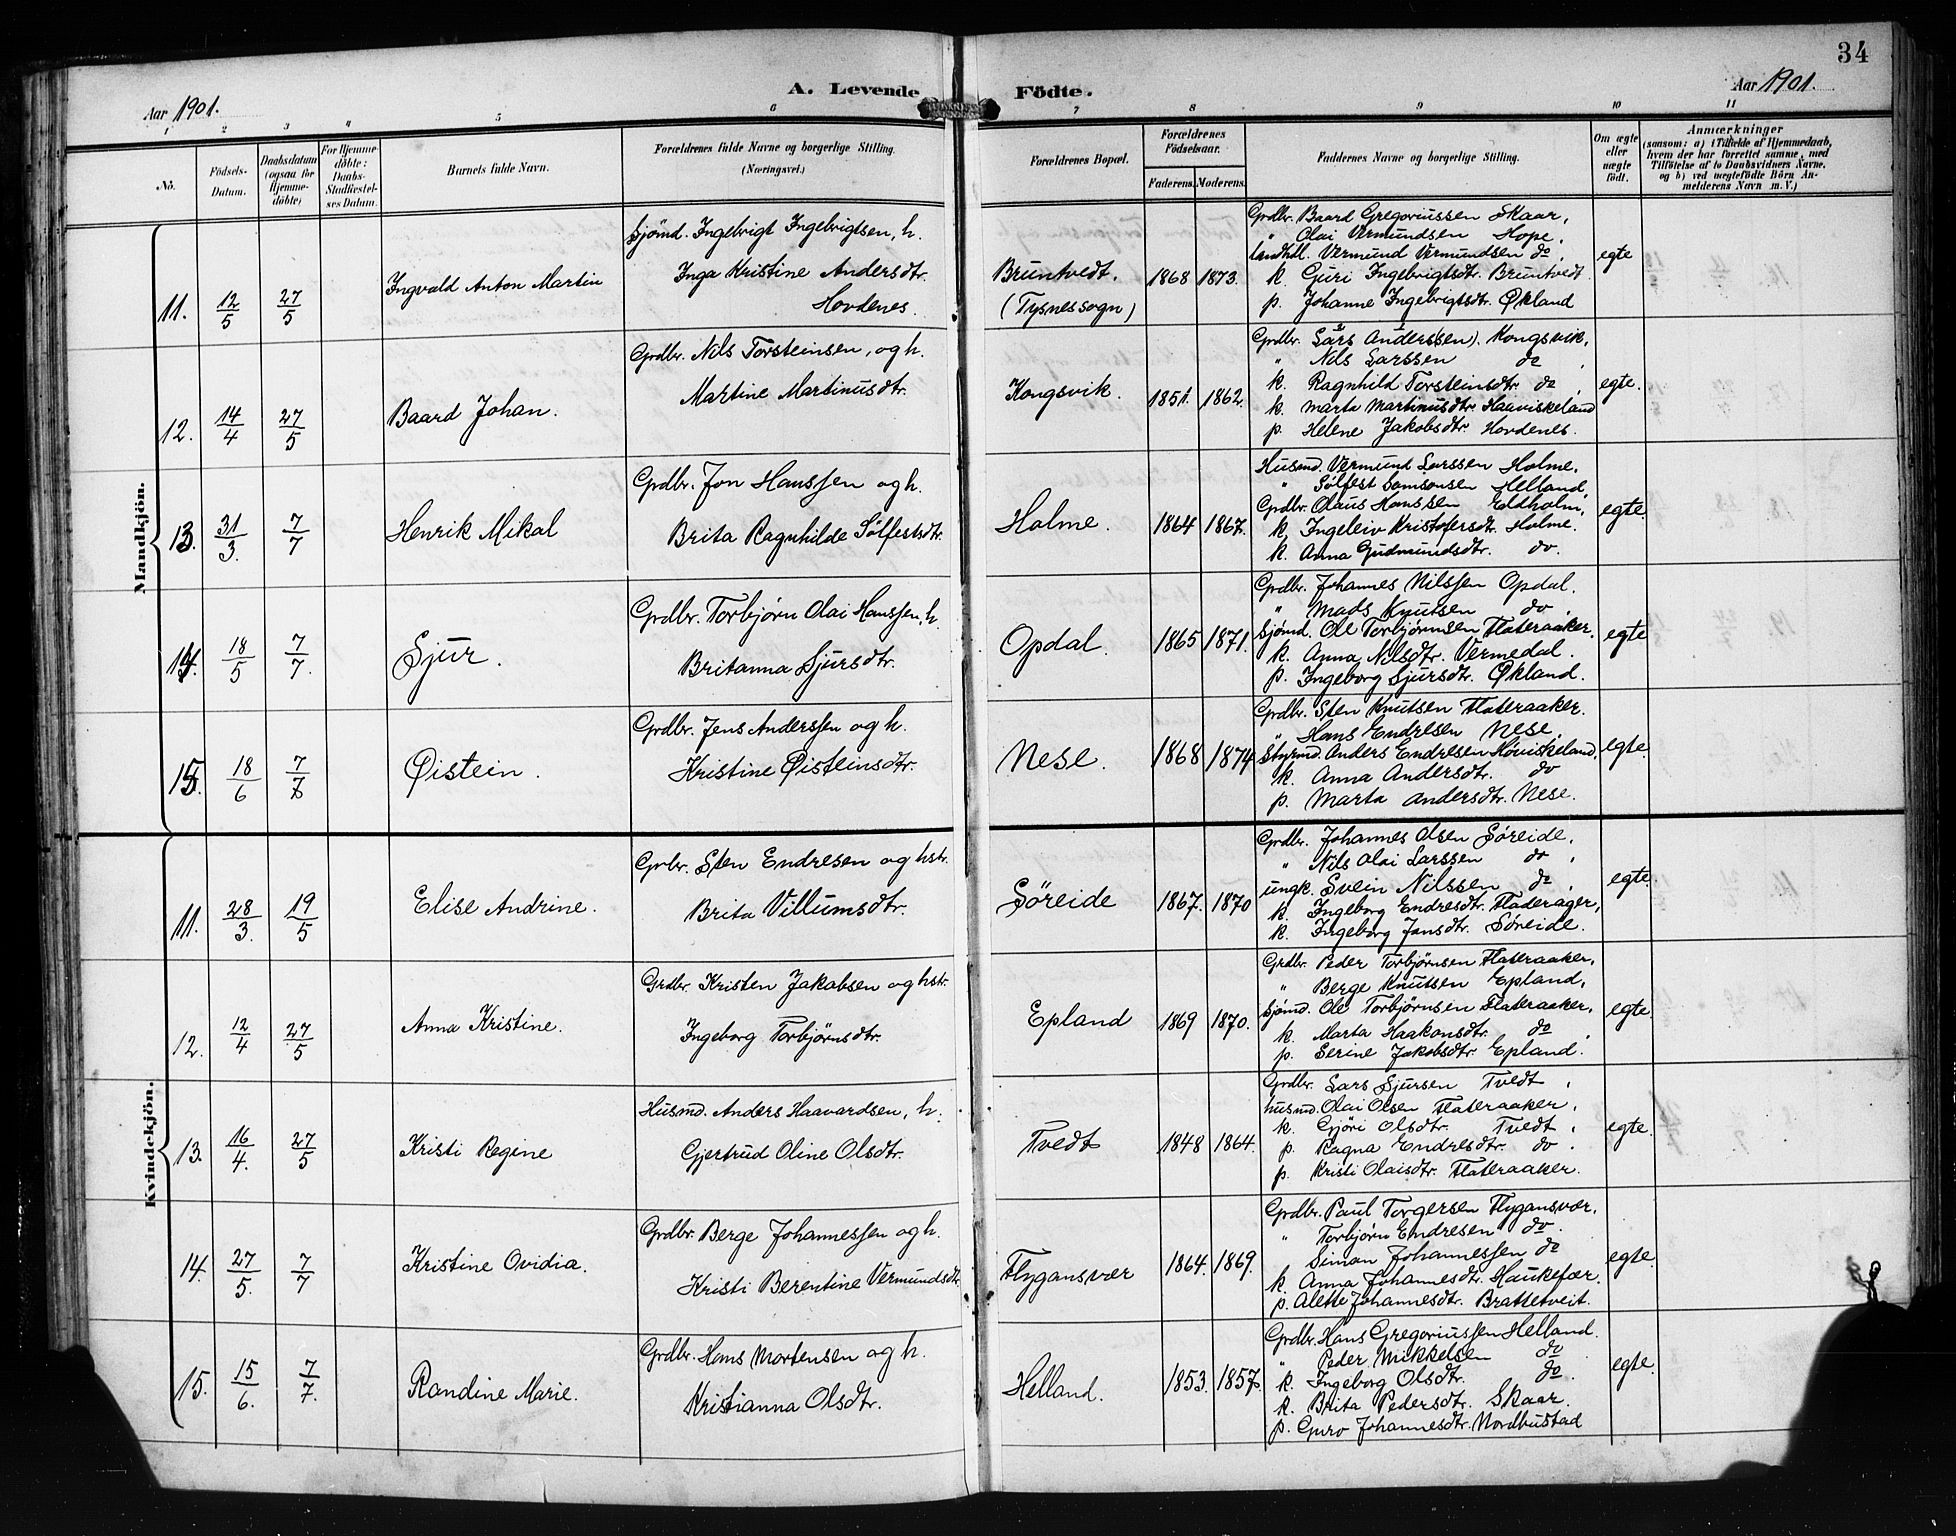 34
Aar 1901.
A. Levende
Födte.
Aar 1901.
1 2 3 4 5 6 7 8 9 10 11
No.
Födsels-
Datum.
Daabsdatum
(ogsaa for
Hjemme-
döbte)
For Hjemme-
döbte:
Daabs-
Stadfæstel-
ses Datum.
Barnets fulde Navn.
Forældrenes fulde Navne og borgerlige Stilling.
(Næringsvei.)
Forældrenes Bopæl.
Forældrenes
Födselsaar.
Faderens. Moderens.
Faddernes Navne og borgerlige Stilling.
Om ægte
eller
uægte
födt.
Anmærkninger
(saasom: a) i Tilfælde af Hjemmedaab,
hvem der har forrettet samme, med
Tilföielse af to Daabsvidners Navne,
og b) ved uægtefödte Börn An-
melderens Navn m. V.)
Mandkjön.
11. 12/5 27/5 Ingvald Anton Martin
Sjømd. Ingebrigt Ingebrigtsen, h.
Inga Kristine Andersdtr.
Hovdenes.
Bruntvedt.
(Tysnessogn)
1868 1873.
Grdbr. Baard Gregoriussen Skaar,
" Olai Vermundsen Hope,
Landhdl. Vermund Vermundsen do,
k. Guri Ingebrigtsdtr. Bruntvedt
p. Johanne Ingebrigtsdtr. Økland
egte
12. 14/4 27/5 Baard Johan.
Grdbr. Nils Torsteinsen, og h.
Martine Martinusdtr.
Kongsvik.
1851. 1862.
Grdbr. Lars Anderssen). Kongsvik,
" Nils Larssen do,
k. Ragnhild Torsteinsdtr. do,
k. Marta Martinusdtr. Haaviskeland
p. Helene Jakobsdtr. Hovdenes.
egte.
13. 31/3. 7/7 Henrik Mikal
Grdbr. Jon Hanssen og h.
Brita Ragnhilde Sølfestsdtr.
Holme.
1864 1867.
Husmd. Vermund Larssen Holme,
" Sølfest Samsonsen Helland,
Grdbr. Olaus Hanssen Eldholm,
k. Ingeleiv Kristofersdtr. Holme.
k. Anna Gudmundsdtr. do.
egte.
14. 18/5 7/7. Sjur.
Grdbr. Torbjørn Olai Hanssen, h.
Britanna Sjursdtr.
Opdal.
1865 1871.
Grdbr. Johannes Nilssen Opdal.
" Mads Knutsen do.
Sjømd. Ole Torbjørnsen Flateraaker.
k. Anna Nilsdtr. Vermedal.
p. Ingeborg Sjursdtr. Økland.
egte
15. 18/6 7/7 Øistein.
Grdbr. Jens Anderssen og h.
Kristine Øisteinsdtr.
Nese.
1868 1874
Grdbr. Sten Knutsen Flateraaker.
" Hans Endresen Nese,
Styrmd. Anders Endresen Høviskeland,
k. Anna Andersdtr. do
p. Marta Andersdtr. Nese.
egte.
Kvindekjön.
11. 28/3. 19/5 Elise Andrine.
Grbr. Sten Endresen og hstr.
Brita Villumsdtr.
Søreide
1867. 1870
Grdbr. Johannes Olsen Søreide,
" Nils Olai Larssen do,
ungk. Svein Nilssen do,
k. Ingeborg Endresdtr. Fladerager,
k. Ingeborg Jansdtr. Søreide.
egte.
12. 12/4 27/5 Anna Kristine.
Grdbr. Kristen Jakobsen og hstr.
Ingeborg Torbjørnsdtr.
Epland
1869 1870.
Grdbr. Peder Torbjørnsen Flateraaker,
" Berge Knutsen Epland,
Sjømd. Ole Torbjørnsen Flateraaker,
k. Marta Haakonsdtr. do,
p. Serine Jakobsdtr. Epland.
egte.
13. 16/4. 27/5 Kristi Regine
Husmd. Anders Haavardsen, h.
Gjertrud Oline Olsdtr.
Tvedt
1848 1864.
Grdbr. Lars Sjursen Tvedt,
husmd. Olai Olsen Flateraaker,
k. Gjöri Olsdtr. Tvedt,
p. Ragna Endresdtr. do.
p. Kristi Olaisdtr. Flateraaker.
egte.
14. 27/5. 7/7 Kristine Ovidia.
Grdbr. Berge Johannessen og h.
Kristi Berentine Vermundsdtr.
Flygansvær
1864. 1869.
Grdbr. Paul Torgersen Flygansvær,
" Torbjørn Endresen do.
" Simon Johannessen do
k. Anna Johannesdtr. Haukefær.
p. Alette Johannesdtr. Brattetveit.
egte.
15. 15/6. 7/7. Randine Marie.
Grdbr. Hans Mortensen og h.
Kristianna Olsdtr.
Helland.
1853. 1857.
Grdbr. Hans Gregoriussen Helland.
" Peder Mikkelsen do
k. Ingeborg Olsdtr. do.
k. Brita Pedersdtr. Skaar.
p. Guro Johannesdtr. Nordhustad
egte.